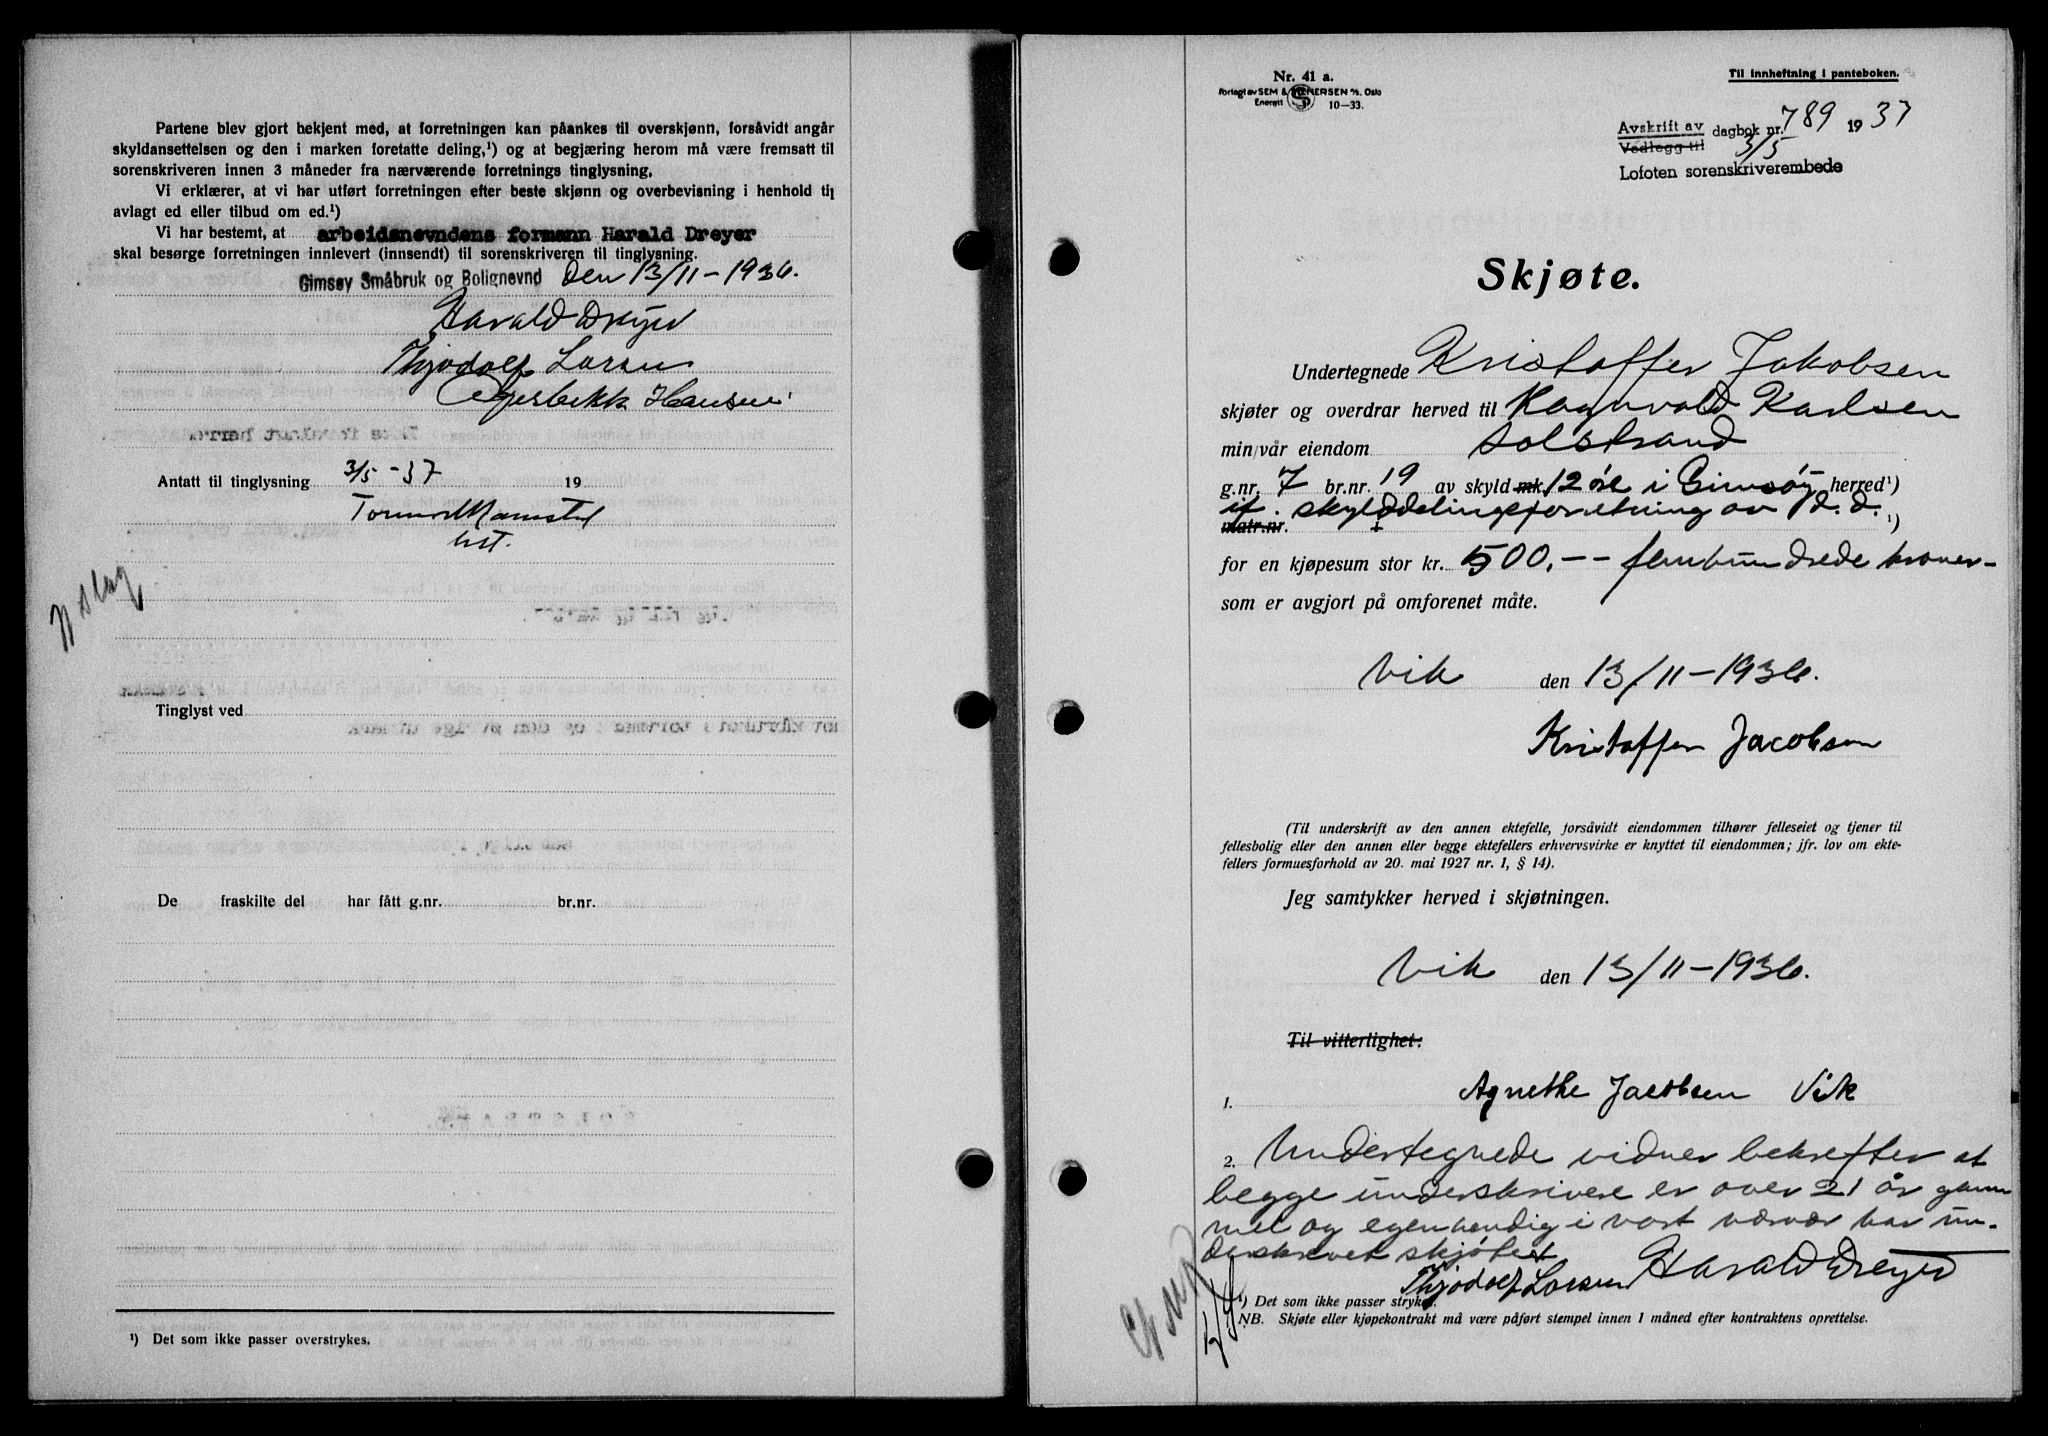 Partene blev gjort bekjent med, at forretningen kan påankes til overskjønn, forsåvidt angår
skyldansettelsen og den i marken foretatte deling,¹) og at begjæring herom må være fremsatt til
sorenskriveren innen 3 måneder fra nærværende forretnings tinglysning.
Vi erklærer, at vi har utført forretningen efter beste skjønn og overbevisning i henhold til
avlagt ed eller tilbud om ed.¹)
Vi har bestemt, at arbeidsnevndens formann Harald Dreyer
skal besørge forretningen innlevert (innsendt) til sorenskriveren til tinglysning.
Gimsøy Småbruk og Bolignevnd Den 13/11-1936.
Harald Dreyer
Thjodolf Larsen
Hansen
Antatt til tinglysning 3/5-37 19
Tinglyst ved
De fraskilte del har fått g.nr. br.nr.
¹) Det som ikke passer overstrykes.
Nr. 41 a.
Forlagt av SEM & STENERSEN A/S. Oslo
Enerett S 10-33.
Til innheftning i panteboken.
Avskrift av dagbok nr. 789 1937
Vedlegg til 3/5
Lofoten sorenskriverembede
Skjøte.
Undertegnede Kristoffer Jakobsen
skjøter og overdrar herved til Ragnvald Karlsen
min/vår eiendom Solstrand
g.nr. 7 br.nr. 19 av skyld mk. 12 øre i Gimsøy herred¹)
if. skylddelingsforretning av d. d.
matr.nr. ¹)
for en kjøpesum stor kr. 500,-- femhundrede kroner-
som er avgjort på omforenet måte.
Vik den 13/11-1936.
Kristoffer Jacobsen
(Til underskrift av den annen ektefelle, forsåvidt eiendommen tilhører felleseiet og tjener til
fellesbolig eller den annen eller begge ektefellers erhvervsvirke er knyttet til eiendommen; jfr. lov om ekte-
fellers formuesforhold av 20. mai 1927 nr. 1, § 14).
Jeg samtykker herved i skjøtningen.
Vik den 13/11-1936.
Til vitterlighet:
1. Agnethe Jacobsen Vik
2. Undertegnede vidner bekrefter at
begge underskrivere er over 21 år gam
mel og egenhendig i vort nærvær har un-
derskrevet skjøtet
Thjodolf Larsen Harald Dreyer
¹) Det som ikke passer strykes.
NB. Skjøte eller kjøpekontrakt må være påført stempel innen 1 måned efter kontraktens oprettelse.